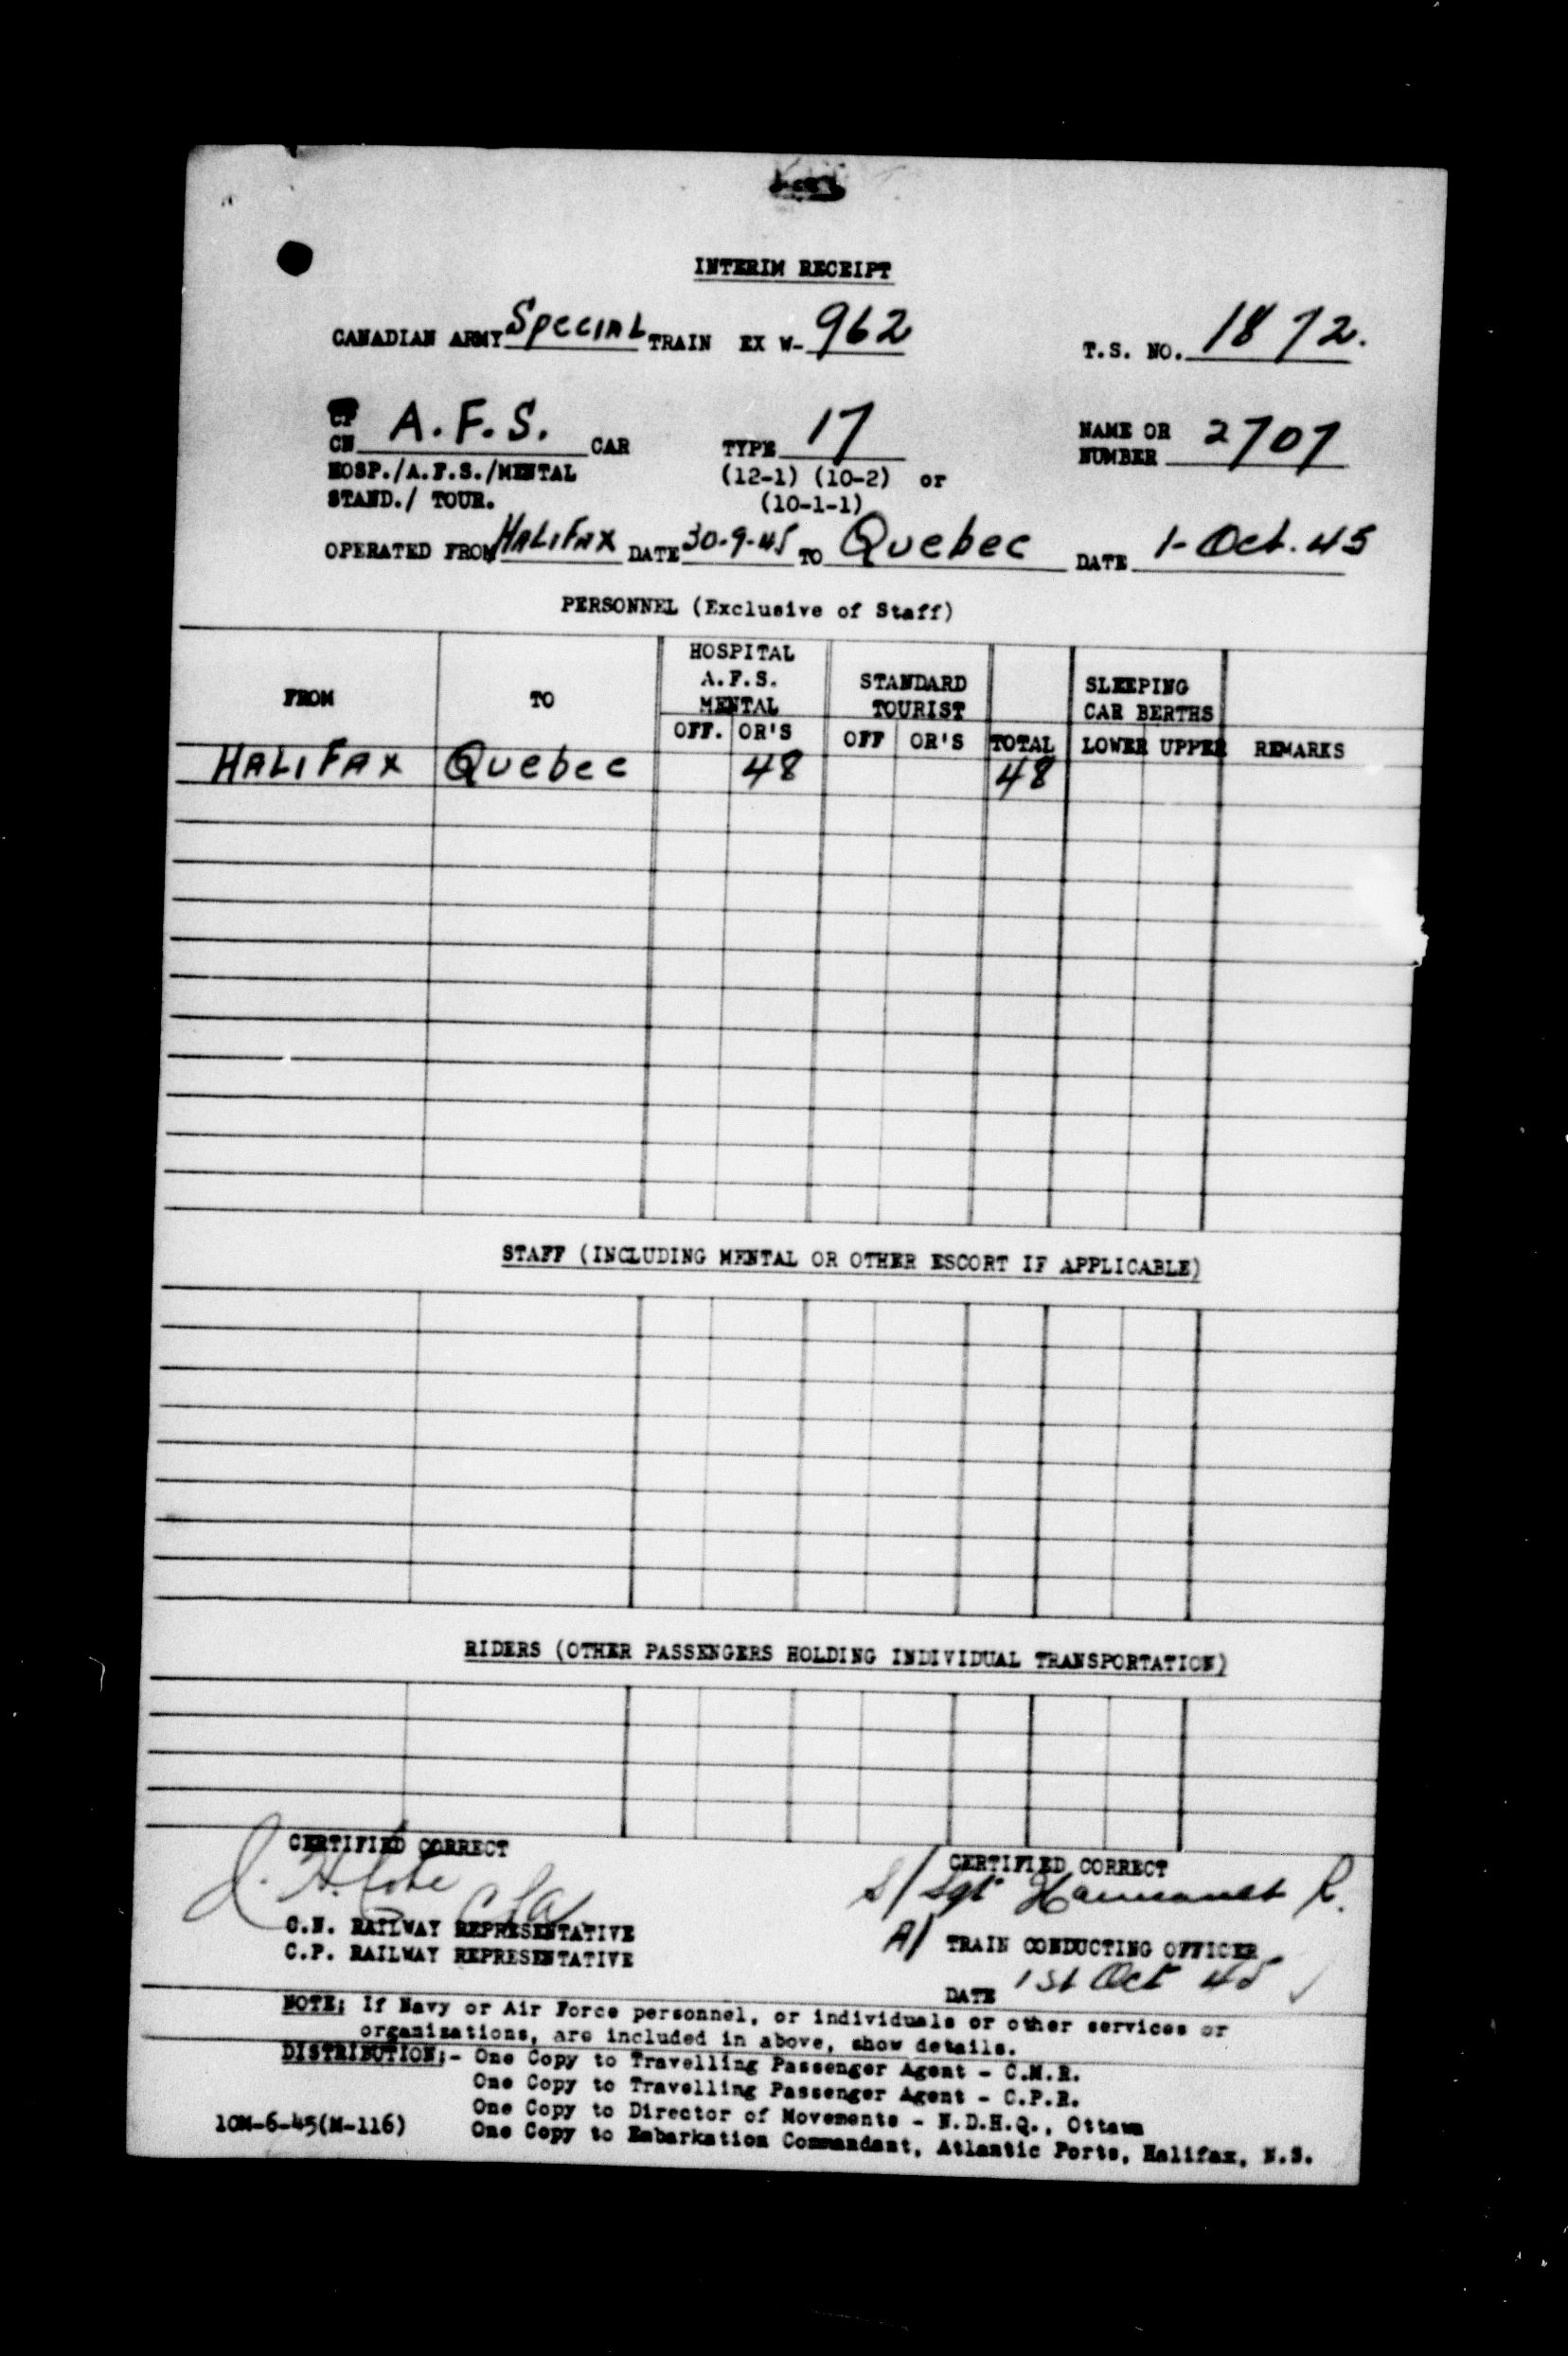 INTERIM RECEIPT
CANADIAN ARMY Special TRAIN EX W- 962 T.S. NO. 1872.
CP
CN A.F.S. CAR TYPE 17 NAME OR NUMBER 2707
HOSP./A.F.S./MENTAL (12-1) (10-2) or
STAND./ TOUR. (10-1-1)
OPERATED FROM HALIFAX DATE 30-9-45 TO Quebec DATE 1-Oct.45
PERSONNEL (Exclusive of Staff)
FROM TO HOSPITAL A.F.S. MENTAL STANDARD TOURIST SLEEPING CAR BERTHS
OFF. OR'S OFF OR'S TOTAL LOWER UPPER REMARKS
HALIFAX Quebec 48 48
STAFF (INCLUDING MENTAL OR OTHER ESCORT IF APPLICABLE)
RIDERS (OTHER PASSENGERS HOLDING INDIVIDUAL TRANSPORTATION)
CERTIFIED CORRECT CERTIFIED CORRECT
S/Sgt R.
C.N. RAILWAY REPRESENTATIVE
C.P. RAILWAY REPRESENTATIVE
A/ TRAIN CONDUCTING OFFICER
DATE 1st Oct 45
NOTE: If Navy or Air Force personnel, or individuals or other services or
organizations, are included in above, show details.
DISTRIBUTION:- One Copy to Travelling Passenger Agent - C.N.R.
One Copy to Travelling Passenger Agent - C.P.R.
One Copy to Director of Movements - N.D.H.Q., Ottawa
10M-6-45(M-116) One Copy to Embarkation Commandant, Atlantic Ports, Halifax, N.S.